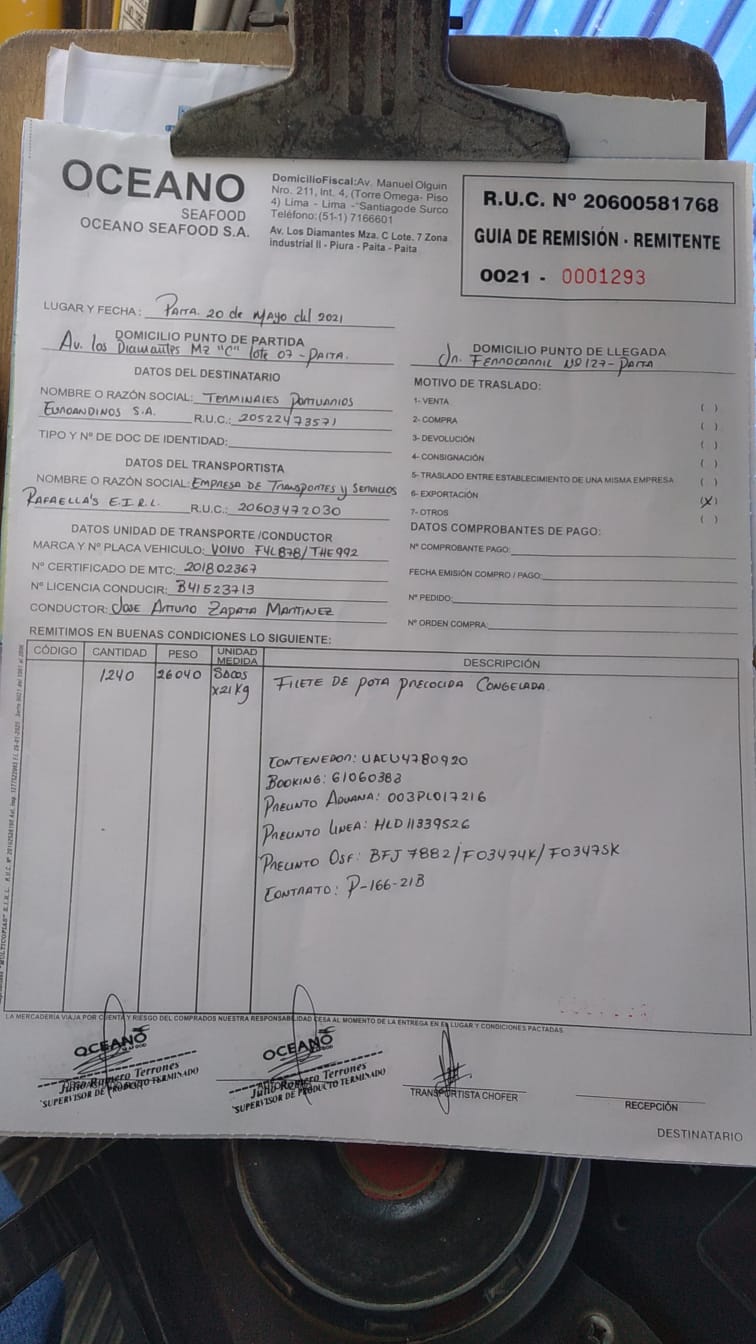 OCEANO
SEAFOOD
OCEANO SEAFOOD S.A.
DomicilioFiscal:Av. Manuel Olguin
Nro. 211, Int. 4, (Torre Omega- Piso
4) Lima - Lima -"Santiagode Surco
Teléfono:(51-1) 7166601
Av. Los Diamantes Mza. C Lote. 7 Zona
industrial II - Piura - Paita - Paita
R.U.C. Nº 20600581768
GUIA DE REMISIÓN - REMITENTE
0021 - 0001293
LUGAR Y FECHA: PAITA. 20 de MAYO del 2021
DOMICILIO PUNTO DE PARTIDA
Av. los Diamantes Mz "C" lote 07 - PAITA.
DOMICILIO PUNTO DE LLEGADA
Jn. FERROCARRIL Nº 127 - PAITA
DATOS DEL DESTINATARIO
NOMBRE O RAZÓN SOCIAL: TERMINALES PORTUARIOS
EUROANDINOS S.A. R.U.C.: 20522473571
TIPO Y Nº DE DOC DE IDENTIDAD:
MOTIVO DE TRASLADO:
1- VENTA ( )
2- COMPRA ( )
3- DEVOLUCIÓN ( )
4- CONSIGNACIÓN ( )
5- TRASLADO ENTRE ESTABLECIMIENTO DE UNA MISMA EMPRESA ( )
6- EXPORTACIÓN (X)
7- OTROS ( )
DATOS DEL TRANSPORTISTA
NOMBRE O RAZÓN SOCIAL: EMPRESA DE TRANSPORTES y SERVICIOS
RAFAELLA'S E.I.R.L. R.U.C.: 20603472030
DATOS UNIDAD DE TRANSPORTE /CONDUCTOR
MARCA Y Nº PLACA VEHICULO: VOLVO F4L878/THE992
Nº CERTIFICADO DE MTC: 201802367
Nº LICENCIA CONDUCIR: B41523713
CONDUCTOR: JOSE ARTURO ZAPATA MARTINEZ
DATOS COMPROBANTES DE PAGO:
Nº COMPROBANTE PAGO:
FECHA EMISIÓN COMPRO / PAGO:
Nº PEDIDO:
Nº ORDEN COMPRA:
REMITIMOS EN BUENAS CONDICIONES LO SIGUIENTE:
CÓDIGO CANTIDAD PESO UNIDAD MEDIDA DESCRIPCIÓN
1240 26040 SACOS x21Kg FILETE DE POTA PRECOCIDA CONGELADA.
CONTENEDOR: UACU4780920
BOOKING: 61060383
PRECINTO ADUANA: 003PL017216
PRECINTO LINEA: HLD11339526
PRECINTO OSF: BFJ 7882/F03474K/F03475K
CONTRATO: P-166-21B
LA MERCADERÍA VIAJA POR CUENTA Y RIESGO DEL COMPRADOS NUESTRA RESPONSABILIDAD CESA AL MOMENTO DE LA ENTREGA EN EL LUGAR Y CONDICIONES PACTADAS.
OCEANO
SEAFOOD
Julio Romero Terrones
SUPERVISOR DE PRODUCTO TERMINADO
OCEANO
SEAFOOD
Julio Romero Terrones
SUPERVISOR DE PRODUCTO TERMINADO
TRANSPORTISTA CHOFER
RECEPCIÓN
DESTINATARIO